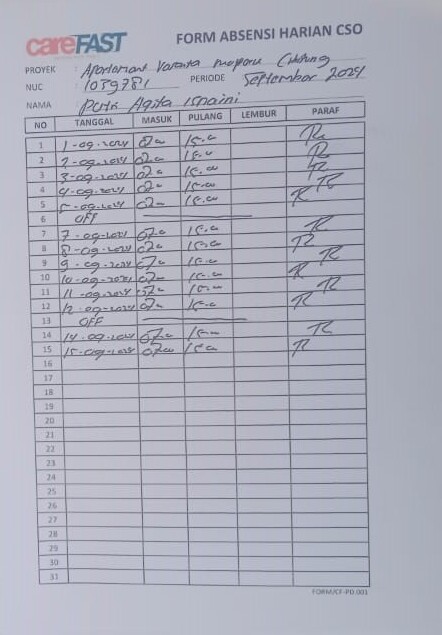 careFAST
FORM ABSENSI HARIAN CSO
PROYEK : Apartement Vasanta
NUC : 1039781 PERIODE September 2024
NAMA Agita Isnaini
NO TANGGAL MASUK PULANG LEMBUR PARAF
1 1-09-2024 07.00 15.00
2 2-09-2024 07.00 15.00
3 3-09-2024 07.00 15.00
4 4-09-2024 07.00 15.00
5 5-09-2024 07.00 15.00
6 OFF
7 7-09-2024 07.00 15.00
8 8-09-2024 07.00 15.00
9 9-09-2024 07.00 15.00
10 10-09-2024 07.00 15.00
11 11-09-2024 07.00 15.00
12 12-09-2024 07.00 15.00
13 OFF
14 14-09-2024 07.00 15.00
15 15-09-2024 07.00 15.00
16
17
18
19
20
21
22
23
24
25
26
27
28
29
30
31
FORM/CF-PD.001